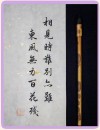 相見時難別亦難
東風無力百花殘